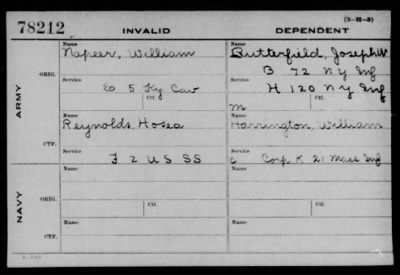 78212
INVALID
DEPENDENT
(3-H-8)
ARMY
ORIG.
Name
Napeer, William
Name
Butterfield, Joseph W
B 72 N Y Inf
Service
Co 5 Ky Cav
Ctf.
Service
H 120 N Y Inf
Ctf.
m
CTF.
Name
Reynolds, Hosea
Name
Harrington, William
Service
F 2 U S SS
Service
c Corp. K 21 Mass Inf
NAVY
ORIG.
Name
Ctf.
Name
Ctf.
CTF.
Name
Name